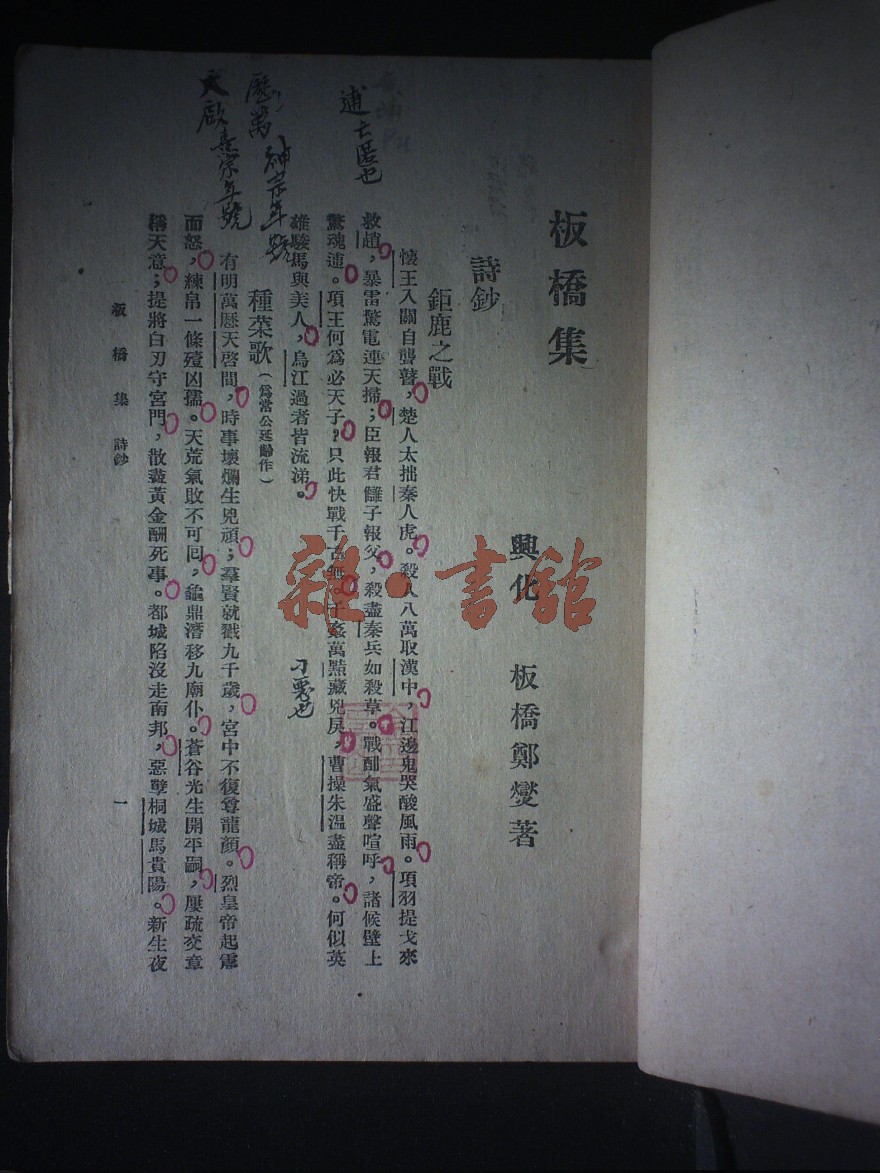 板橋集
興化 板橋鄭燮著
詩鈔
鉅鹿之戰
懷王入關自聾瞽，楚人太拙秦人虎。殺人八萬取漢中，江邊鬼哭酸風雨。項羽提戈來
救趙，暴雷驚電連天掃；臣報君讎子報父，殺盡秦兵如殺草。戰酣氣盛聲喧呼，諸侯壁上
驚魂逋。項王何爲必天子？只此快戰千古無。千姦萬黠藏兇戾，曹操朱温盡稱帝。何似英
雄駿馬與美人，烏江過者皆流涕。
種菜歌（爲常公延齡作）
有明萬曆天啓間，時事壞爛生兇頑；羣賢就戮九千歲，宮中不復尊龍顏。烈皇帝起震
而怒，練帛一條殪凶孺。天荒氣敗不可回，龜鼎潛移九廟仆。蒼谷光生開平嗣，屢疏交章
稱天意；提將白刃守宮門，散盡黃金酬死事。都城陷沒走南邦，惡孽桐城馬貴陽。新生夜
板橋集 詩鈔 一
逋亡匿也
曆萬 神宗年號
天啟 熹宗年號
刁惡也
雜·書館